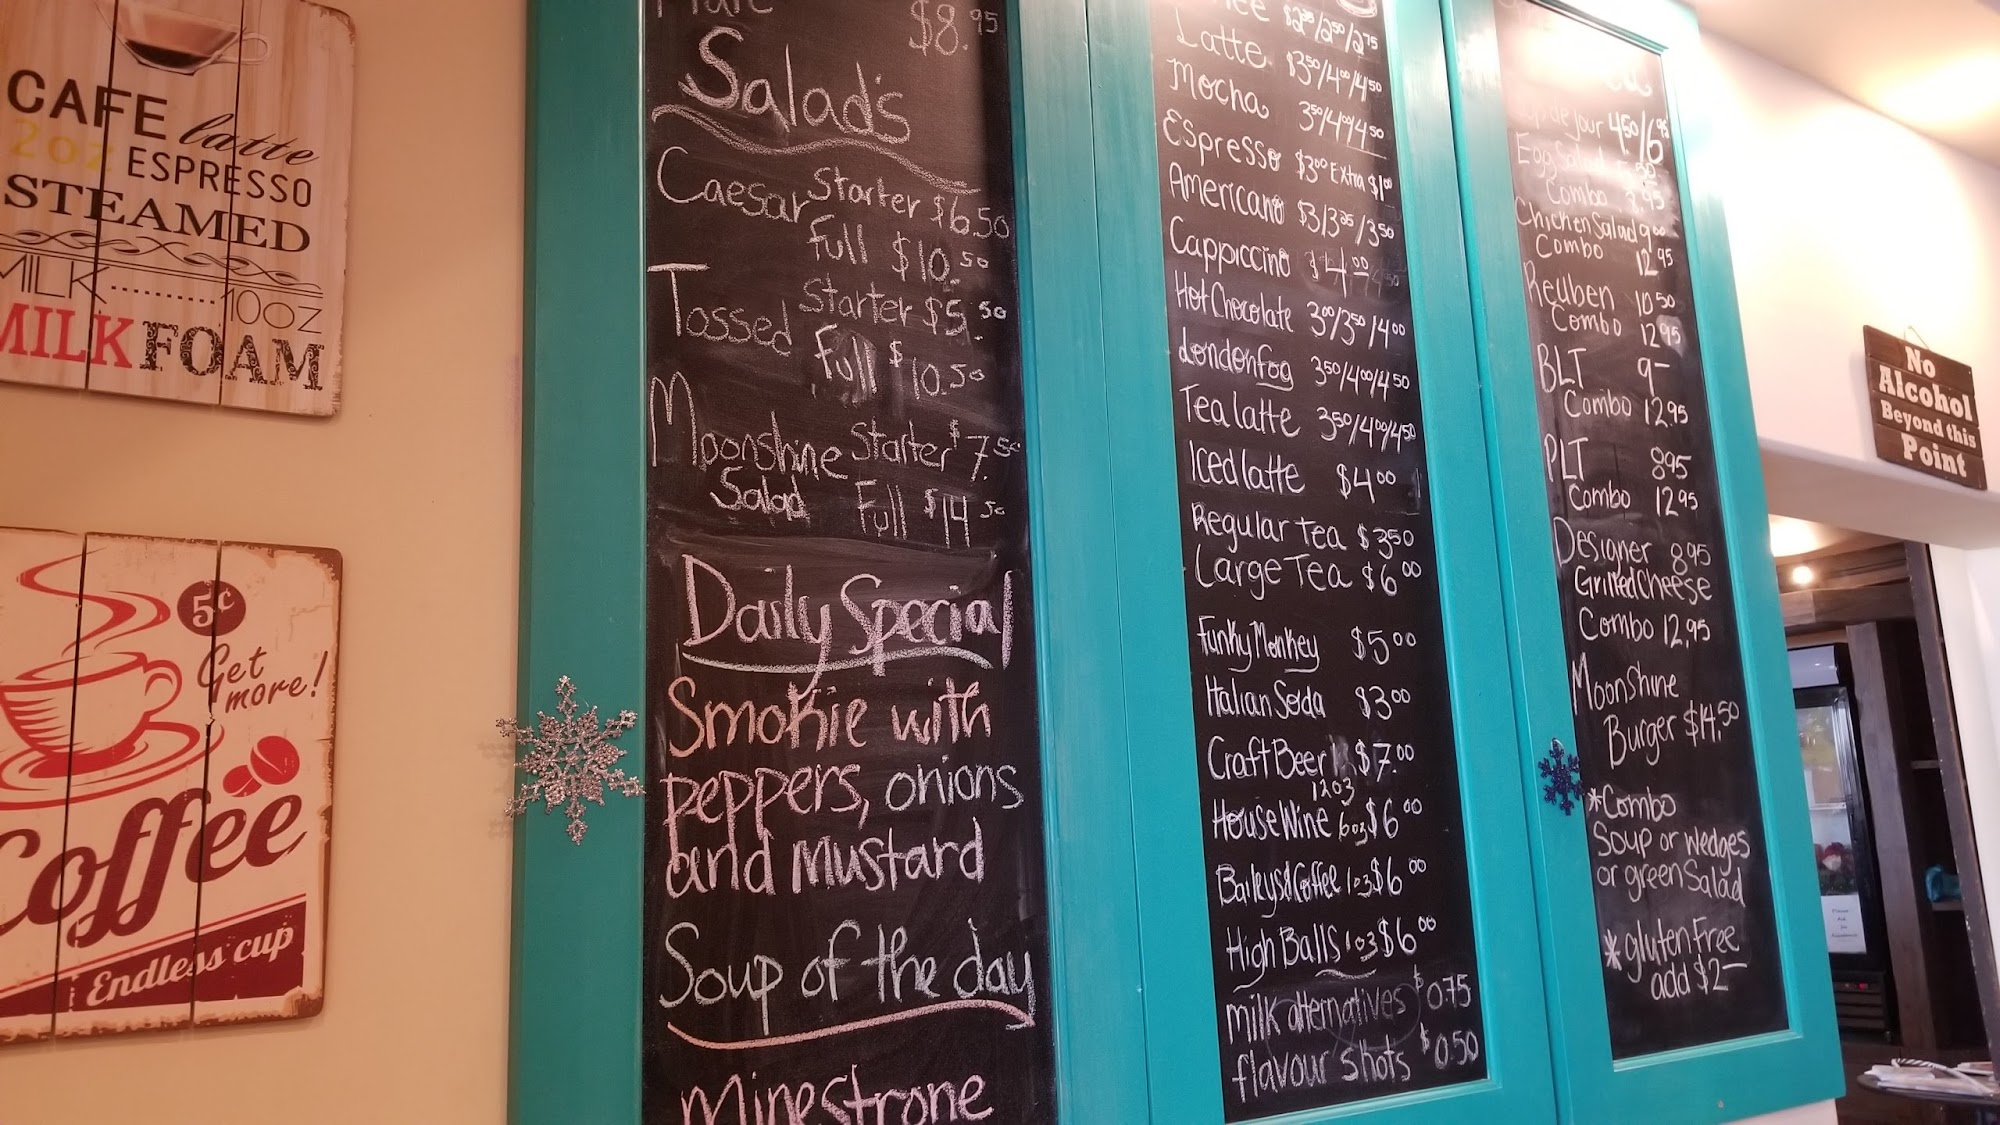 CAFE latte
2oz ESPRESSO
STEAMED
MILK 10OZ
MILK FOAM
5¢
Get
more!
Coffee
Endless cup
$8.95
Salad's
Caesar Starter $6.50
Full $10.50
Tossed Starter $5.50
Full $10.50
Moonshine Starter $7.50
Salad Full $14.50
Daily Special
Smokie with
peppers, onions
and Mustard
Soup of the day
Minestrone
$2.25/2.50/2.75
Latte $3.50/4.00/4.50
Mocha 3.50/4.00/4.50
Espresso $3.00 Extra $1.00
Americano $3/3.25/3.50
Cappiccino $4.00
Hot Chocolate 3.00/3.50/4.00
London Fog 3.50/4.00/4.50
Tea latte 3.50/4.00/4.50
Iced latte $4.00
Regular Tea $3.50
Large Tea $6.00
Funky Monkey $5.00
Italian Soda $3.00
Craft Beer $7.00
12oz
House Wine 6oz $6.00
Baileys & Coffee 1oz $6.00
High Balls 1oz $6.00
milk alternatives $0.75
flavour shots $0.50
de jour 4.50/6.95
Egg Salad
Combo
Chicken Salad 9.00
Combo 12.95
Reuben 10.50
Combo 12.95
BLT 9-
Combo 12.95
PLT 8.95
Combo 12.95
Designer 8.95
Grilled Cheese
Combo 12.95
Moonshine
Burger $14.50
*Combo
Soup or wedges
or green Salad
*gluten Free
add $2-
No
Alcohol
Beyond this
Point